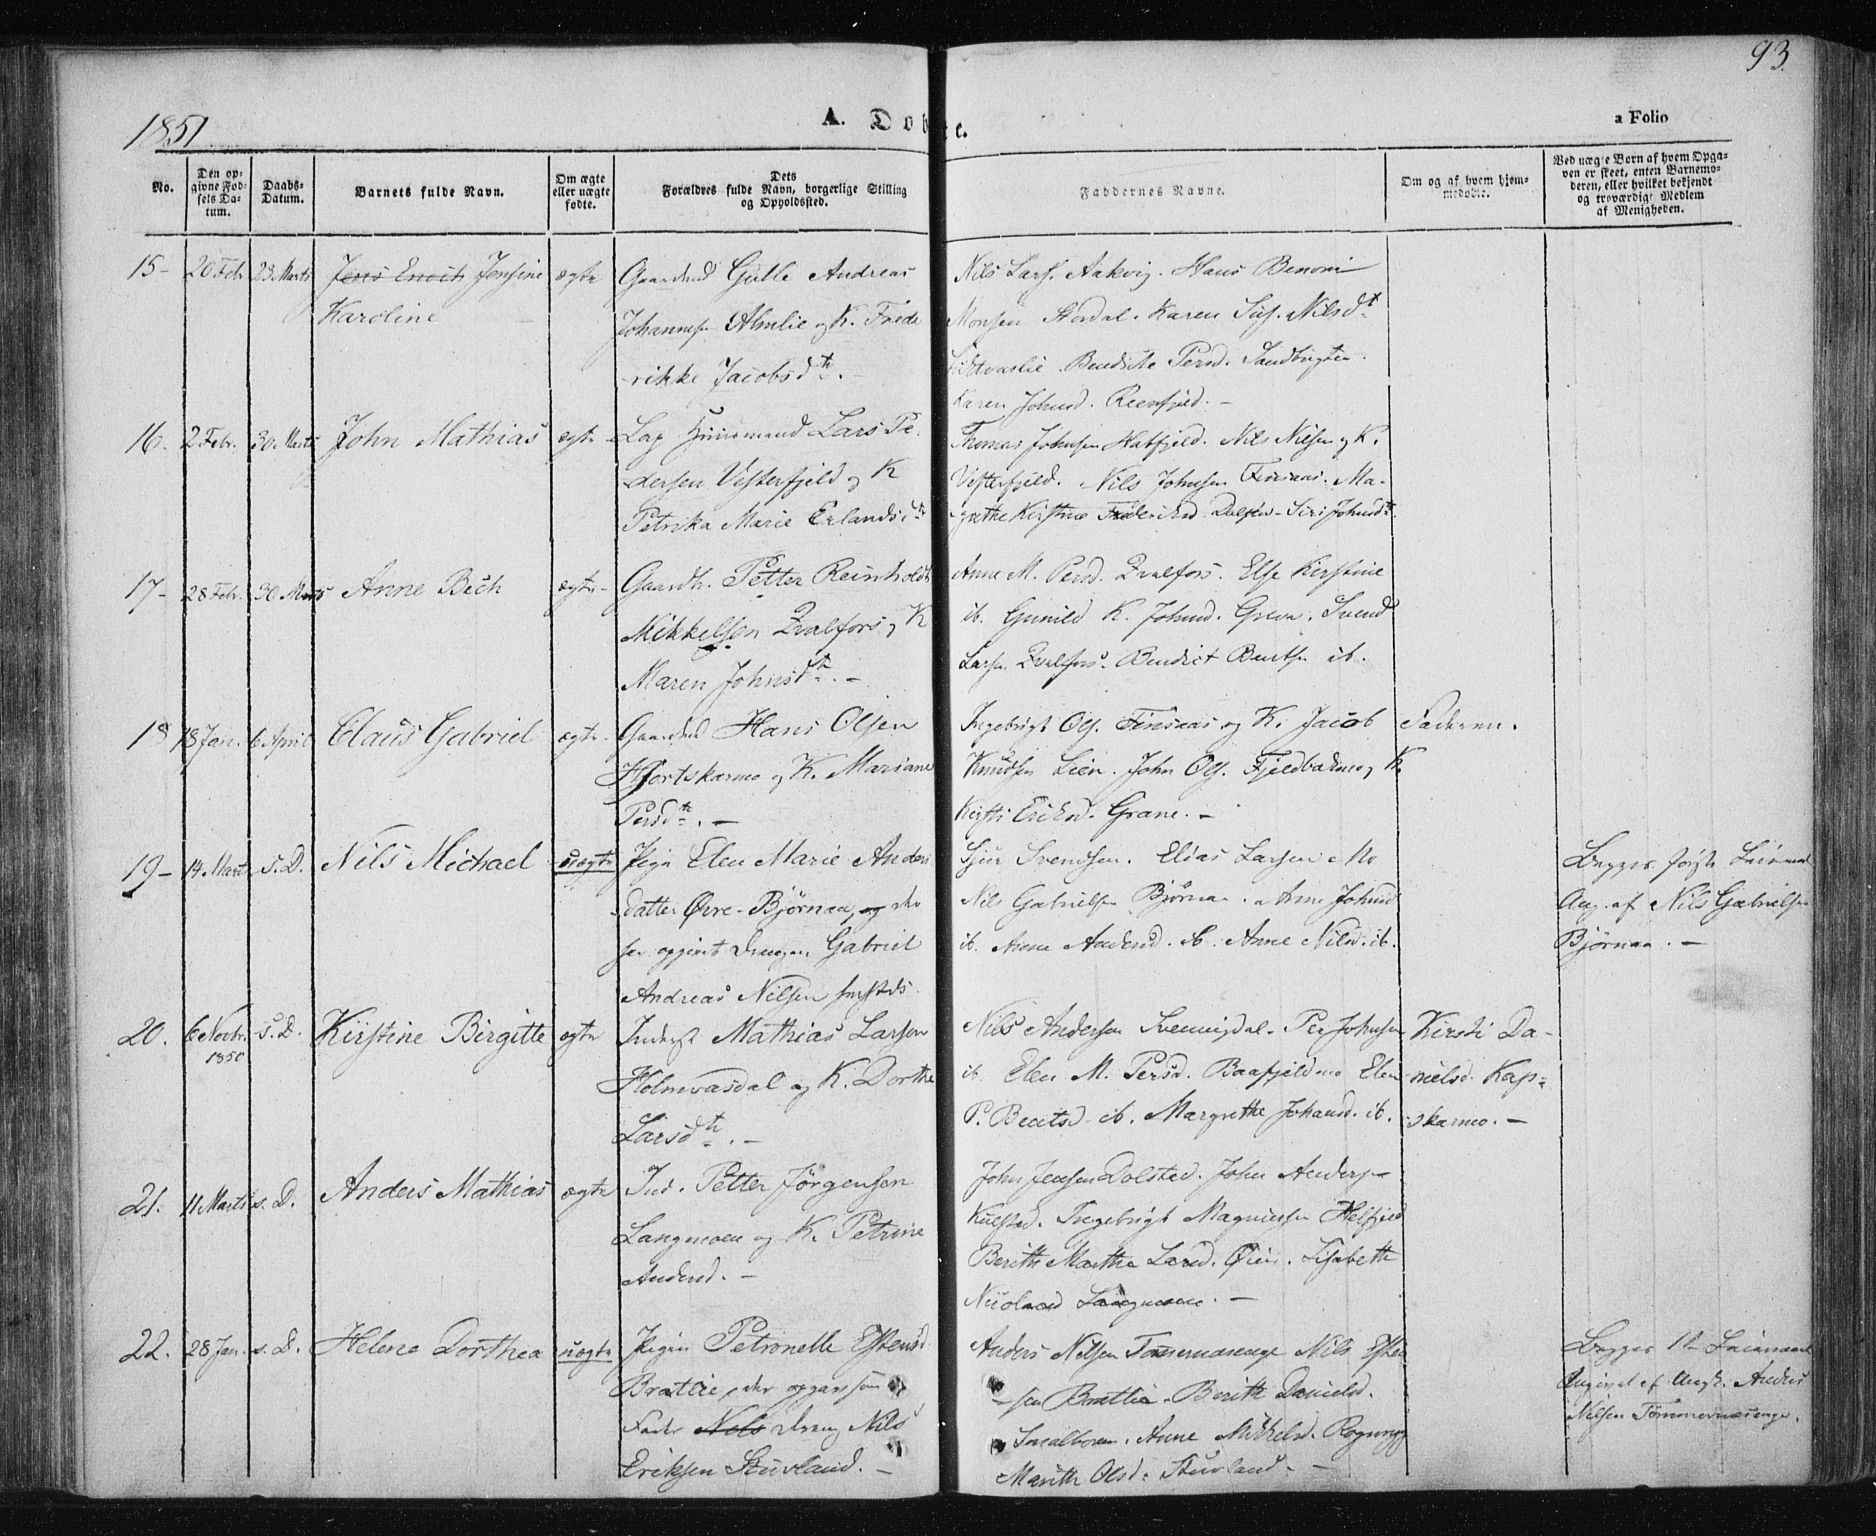 93.
1851
A. Døbte.
a Folio
No.
Den op-
givne Fød-
sels Da-
tum.
Daabs-
Datum.
Barnets fulde Navn.
Om ægte
eller uægte
fødte.
Dets
Forældres fulde Navn, borgerlige Stilling
og Opholdssted.
Faddernes Navne.
Om og af hvem hjem-
medøbte.
Ved uægte Børn af hvem Opga-
ven er skeet, enten Barnemo-
deren, eller hvilket bekjendt
og troværdigt Medlem
af Menigheden.
15- 20 Febr 23 Marts Jens Enoch Jensine ægte
Karoline
Gaardmd Gulle Andreas
Johannesen Almlie og K. Frede
-rikke Jacobsdtr. -
Nils Lars. Aakvig. Hans Benoni
Monsen Stordal. Karen Nilsdtr
Benedicte Persd. Sandbugten
Karen Johnsd. Reenfjeld. -
16. 2 Febr. 30 Marts John Mathias ægte
Lap Huusmand Lars Pe-
dersen Vesterfjeld og K
Petrika Marie Erlandsdtr
Thomas Johnsen Hatfjeld. Nils Nilsen og K.
Vesterfjeld. Nils Johnsen Finsaas. Ma-
grethe Kirstine Frederiksd. - Siri Johnsdtr.
17- 28 Febr. 30 Marts Anne Bech ægte-
Gaardb. Petter Reinholdt
Mikkelsen Qvalfors og K
Maren Johnsdtr. -
Anne M. Persd. Qvalfors. Else Kirstine
ib. Gunild K. Johnsd. Svend
Larsen Qvalfors. Benedict Bentsn ib.
18 18 Jan. 6 April Claus Gabriel ægte-
Gaardmd Hans Olsen
Hjortskarmo og K. Mariane
Persdtr. -
Ingebrigt Ols. Finsaas og K. Jacob
Knudsen Lien. John Ols. Fjeldbækmo og K.
Kirsti Eriksd. Grane. -
Faderen.
19- 14 Marts s. D. Nils Michael uægte
Pige Elen Marie Anders
datter Øvre-Bjørnaa, og der
har opgivet drengen Gabriel
Andreas Nilsen sammesteds.
Sjur Svendsen. Elias Larsen Mo
Nils Gabrielsen Bjørnaa. Anne Johnsd
ib. Anne Andersd. ib. Anne Nilsd. ib.
Begges første Leiermaal
Ang. af Nils Gabrielsen
Bjørnaa. -
20. 6 Novbr. 1850 s. D. Kirstine Birgitte ægte
Inderst Mathias Larsen
Holmvasdal og K. Dorthe
Larsdtr. -
Nils Andersen Svenningdal. Per Johnsen
ib. Elen M. Persd. Baafjeldmo Elen
P. Beatsd. ib. Margrethe Johansd. ib.
Kirsti Da-
nielsd. Kap-
skarmo. -
21. 11 Marts s. D. Anders Mathias ægte
Ind. Petter Jørgensen
Langmoen og K. Petrine
Andersd. -
John Jensen Dolstad. John Anders-
Kulstad. Ingebrigt Magnussen Helfjeld
Berith Martha Larsd. Øien. Lisabeth
Nicolaisd Langmoen. -
22. 28 Jan. s. D. Helene Dorthea uægte
Pigen Petronelle Estensd.
Brattlie, der opgav som
Fader Nels dreng Nils
Eriksen Stuvland. -
Anders Nilsen Tømmermosenge Nils Esten
-sen Brattlie. Berith Danielsd.
Smalboen. Anne Mikkelsd.
Marith Olsd. Stuvland. -
Begges 1ste Leiermaal
Angivet af Ungk. Anders
Nilsen Tømmermosenge.